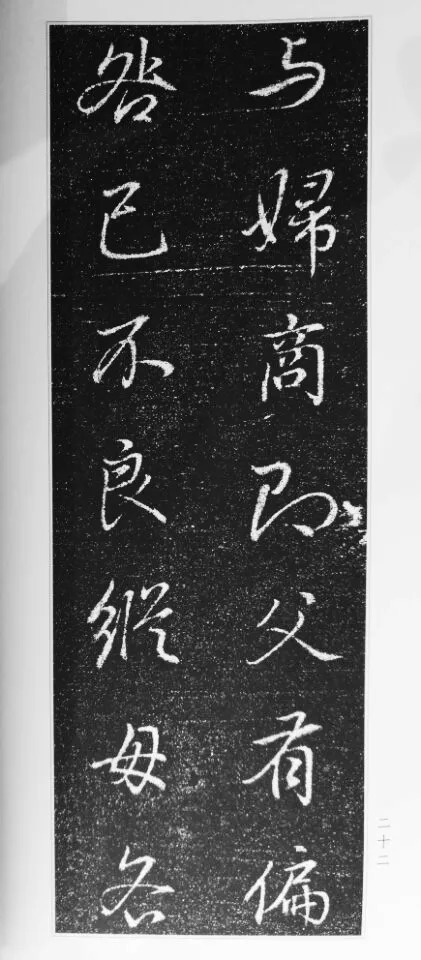 与婦商即父有偏
咎已不良縱母各
二十二